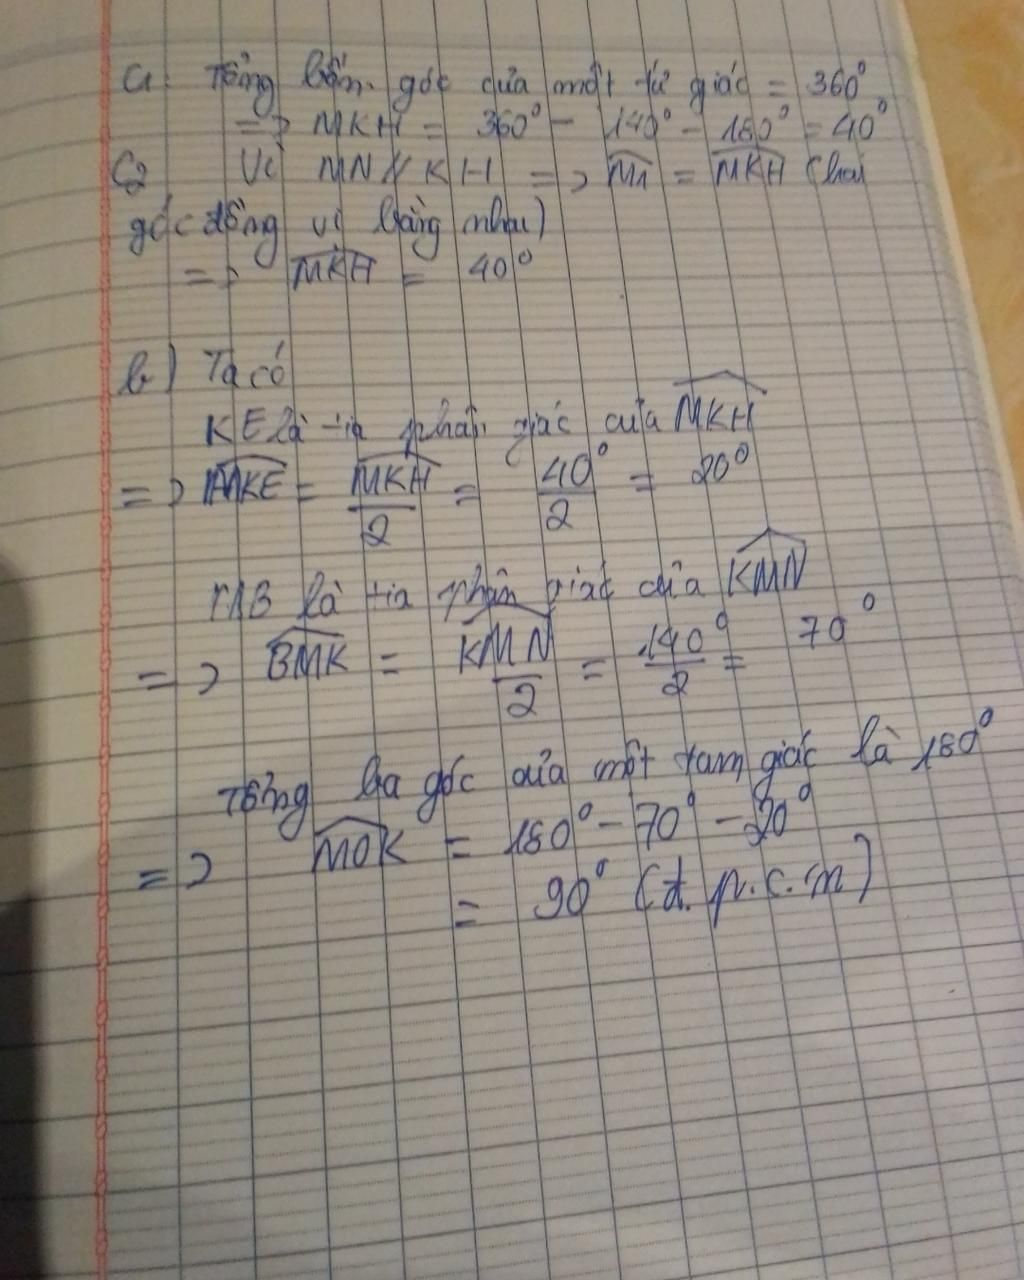 C1 Tổng bốn góc của một tứ giác = 360°
=> MKH = 360° - 140° - 180° = 40°
C2 Vì MN // KH => M1 = MKH (hai
góc đồng vị bằng nhau)
=> MKH = 40°
b) Ta có
KE là tia phân giác của MKH
=> MKE = MKH/2 = 40°/2 = 20°
MB là tia phân giác của KMN
=> BMK = KMN/2 = 140°/2 = 70°
Tổng ba góc của một tam giác là 180°
=> MOK = 180° - 70° - 20°
= 90° (đ.p.c.m)